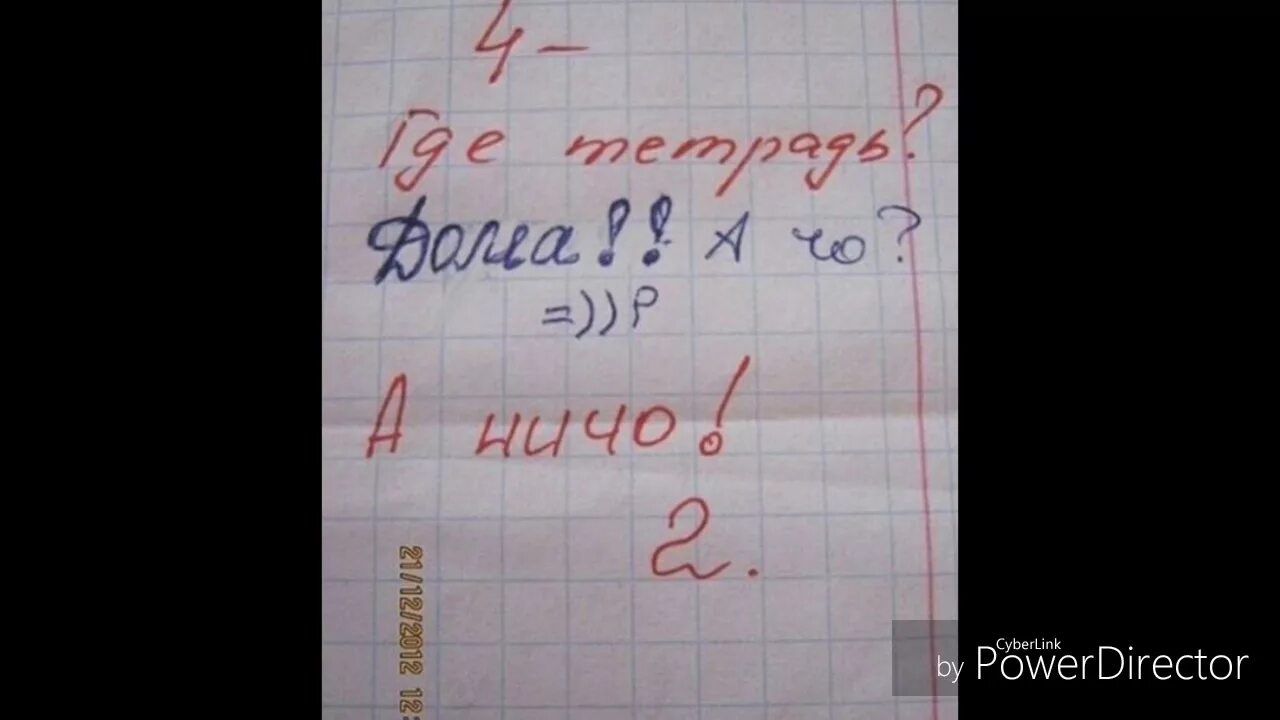 4-
Где тетрадь?
Дома!! А чо?
=))P
А ничо!
2.
21/12/2012 12:
CyberLink
by PowerDirector